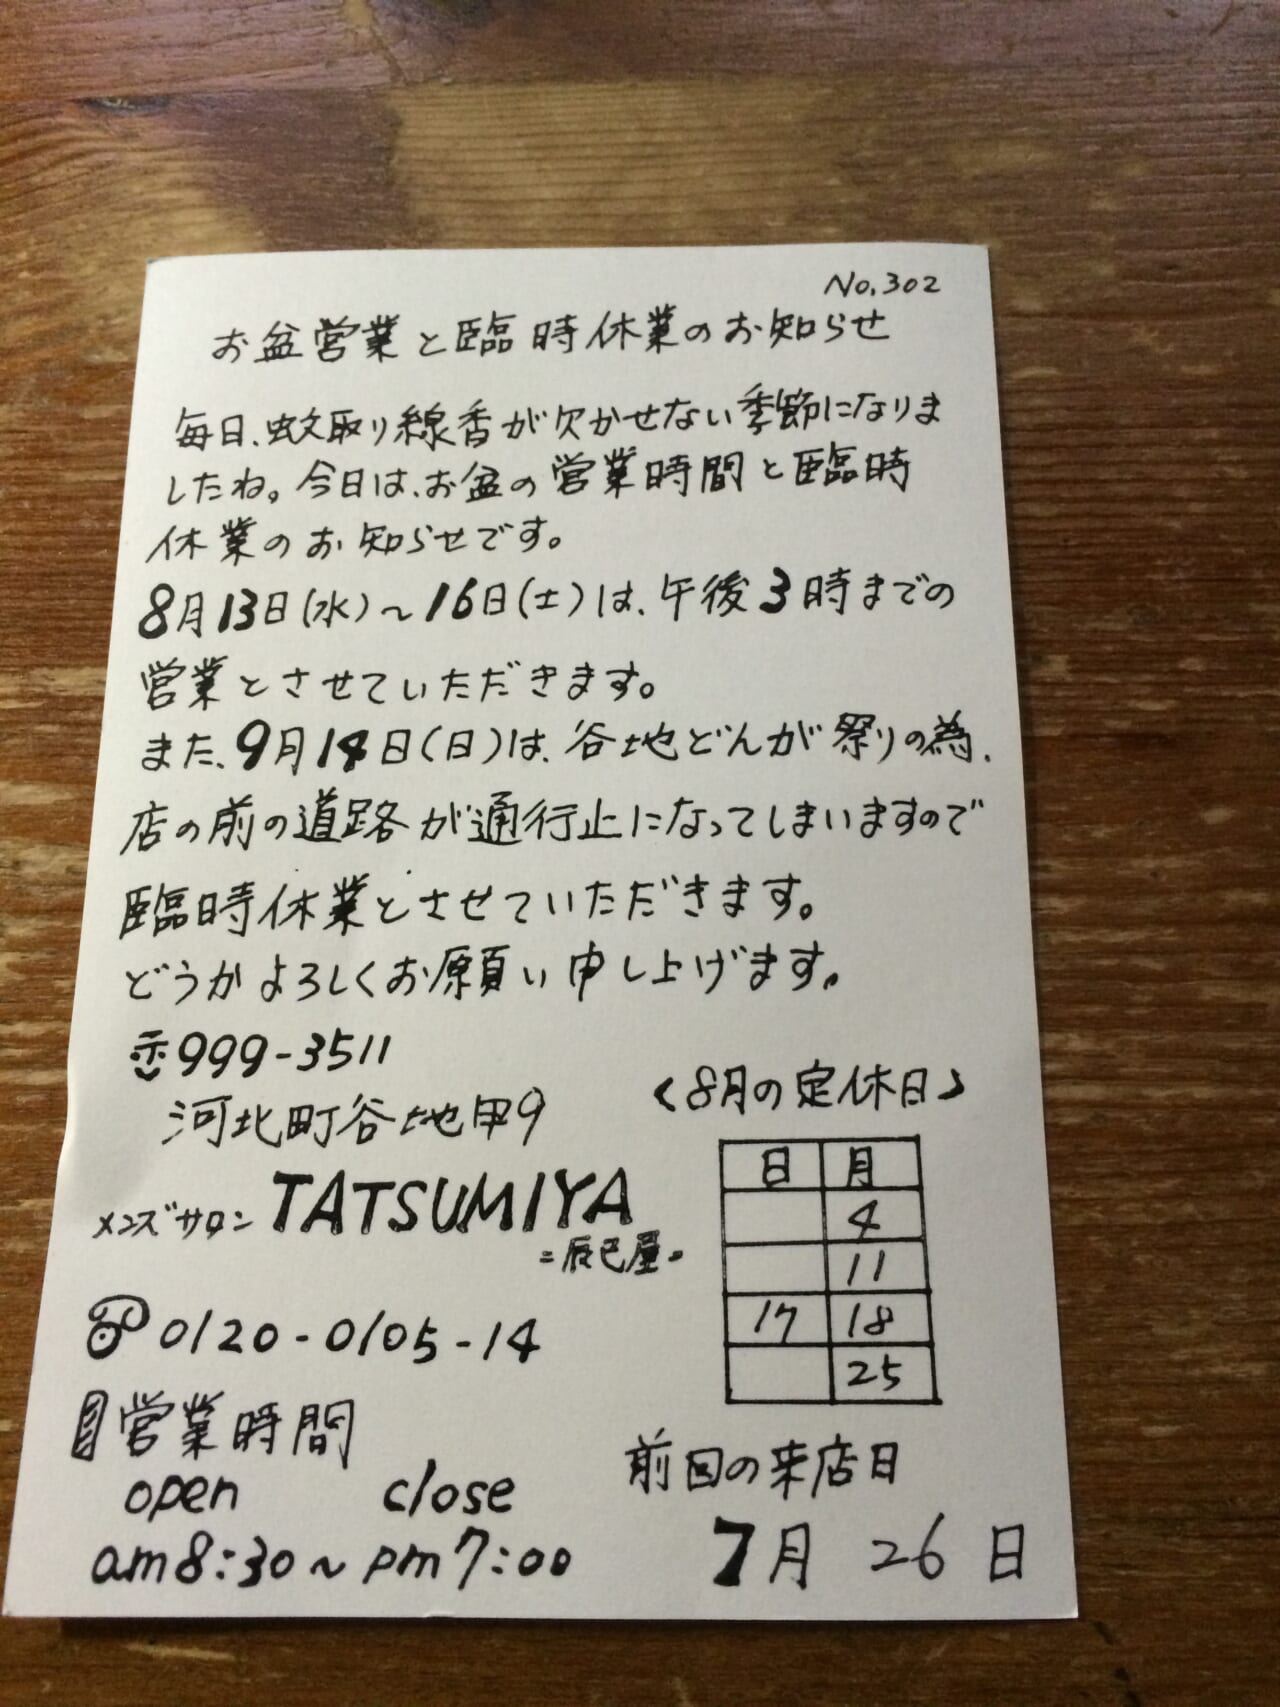 No.302
お盆営業と臨時休業のお知らせ
毎日、蚊取り線香が欠かせない季節になりま
したね。今日は、お盆の営業時間と臨時
休業のお知らせです。
8月13日(水)～16日(土)は、午後3時までの
営業とさせていただきます。
また、9月14日(日)は、谷地どんが祭りの為、
店の前の道路が通行止になってしまいますので
臨時休業とさせていただきます。
どうかよろしくお願い申し上げます。
〒999-3511
河北町谷地甲9
メンズサロン TATSUMIYA
=辰巳屋=
☎0120-0105-14
営業時間
open close
am8:30～pm7:00
<8月の定休日>
日 月
4
11
17 18
25
前回の来店日
7月 26 日